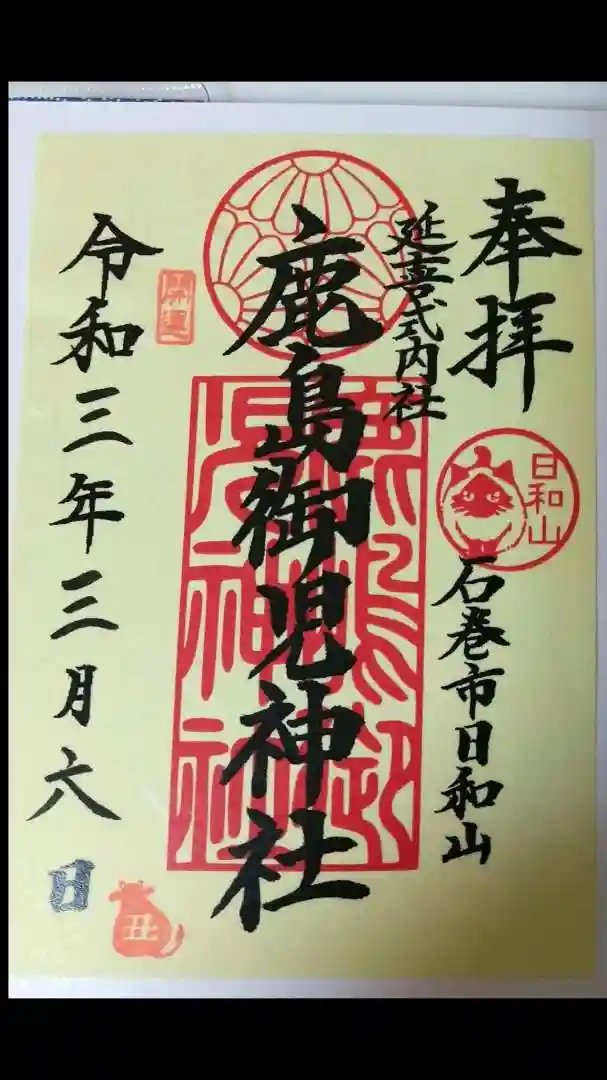 奉拝
延喜式内社
日和山
石巻市日和山
鹿島御児神社
令和三年三月六日
丑